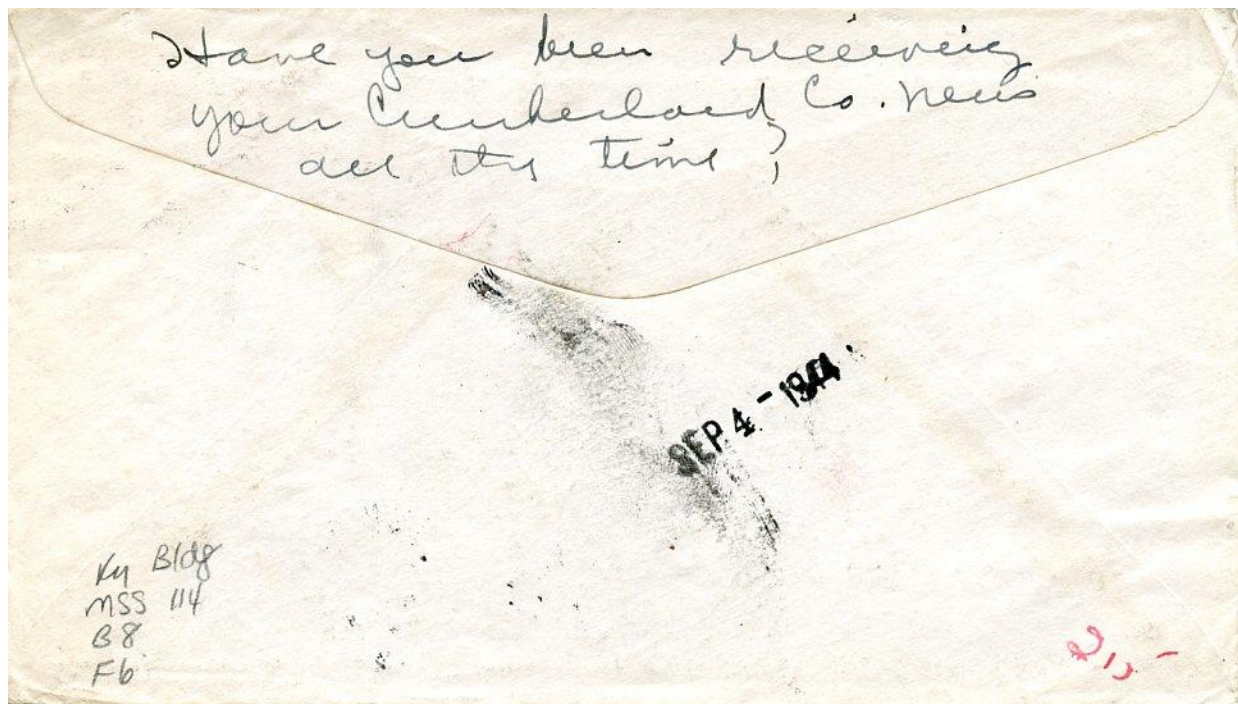 Have you been receiving
your Cumberland Co. News
all the time?
SEP 4 - 1944
Ky Bldg
MSS 114
B8
F6